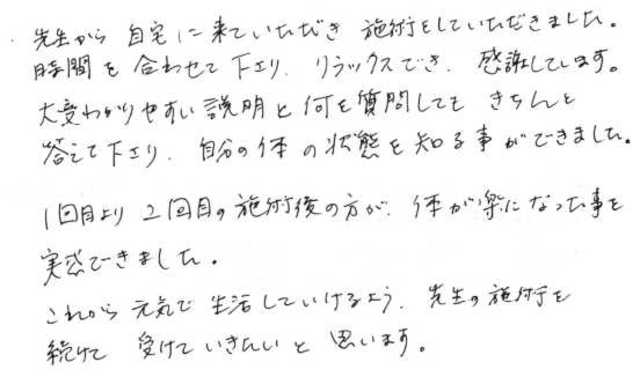 先生から 自宅に来ていただき 施術をしていただきました。
時間を合わせて下さり、リラックスでき、感謝しています。
大変わかりやすい説明と何を質問しても きちんと
答えて下さり、自分の体の状態を知る事ができました。
1回目より2回目の施術後の方が、体が楽になった事を
実感できました。
これから元気で生活していけるよう、先生の施術を
続けて 受けていきたいと 思います。